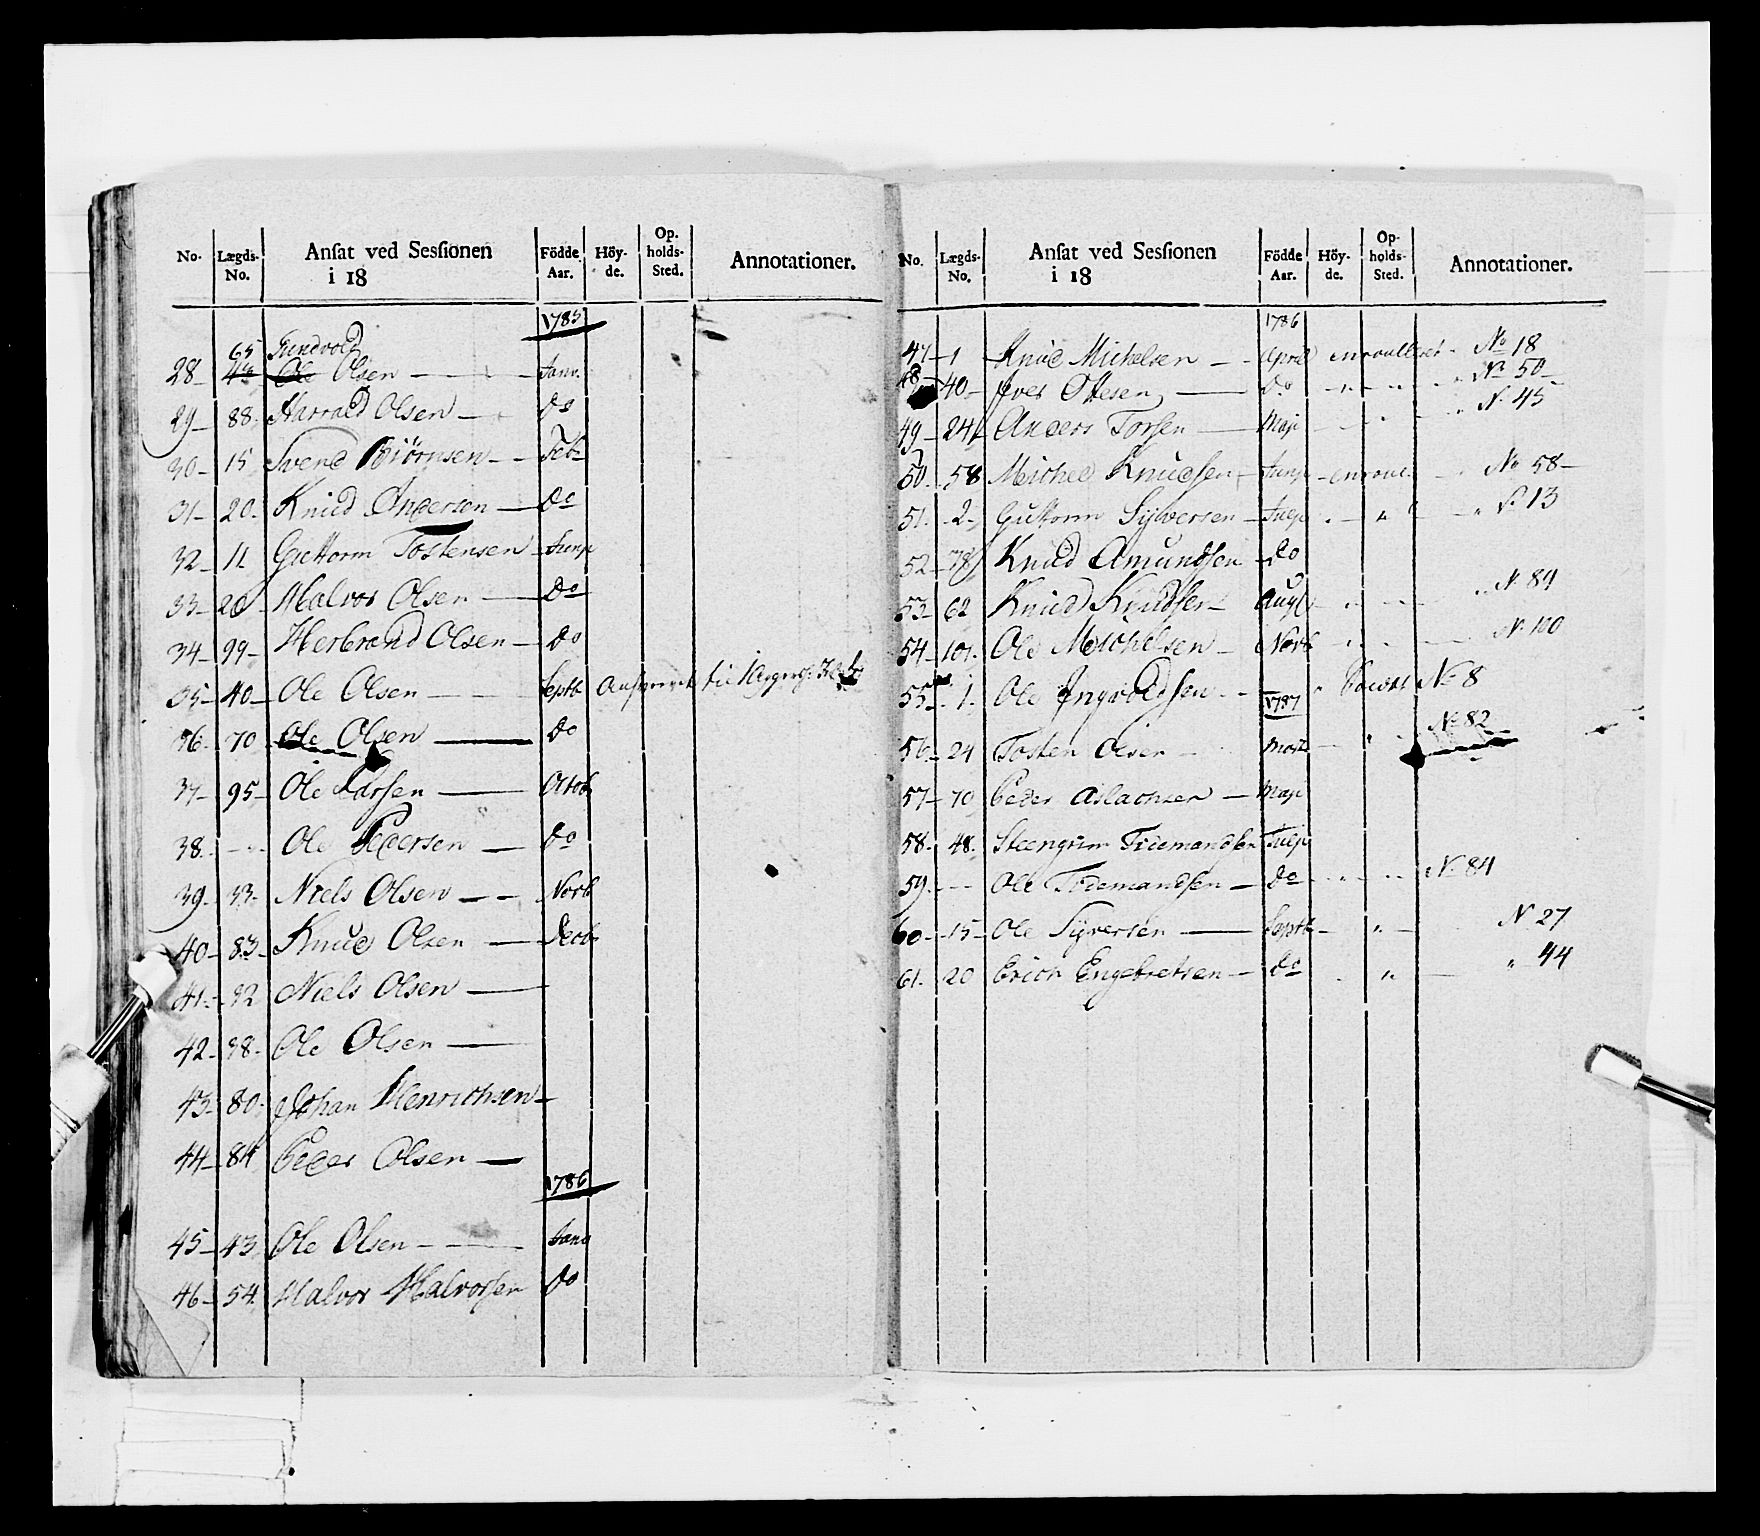 No. Lægds-No. Ansat ved Sessionen i 18 Födde Aar. Höy-de. Op-holds-Sted. Annotationer.
1785
65 Gundvold
28 - Ole Olsen - Janv.
29 - 88 - Harrald Olsen - do
30 - 15 Svend Biörnsen - Feb
31 - 20 - Knud Andersen - do
32 - 11 Guttorm Tostensen - Junj
33 - 20 Halvor Olsen - do
34 - 99 - Herbrand Olsen - do
35 - 40 - Ole Olsen - Septb til
36 - 70 - Ole Olsen - do
37 - 95 - Ole Larsen - Octob
38 - - Ole Pedersen - do
39 - 33 - Niels Olsen - Novb
40 - 83 - Knud Olsen - Decb
41 - 92 Niels Olsen -
42 - 98 - Ole Olsen -
43 - 80 - Johan Henrichsen -
44 - 84 Peder Olsen -
1786
45 - 43 Ole Olsen - Janv
46 - 54 Halvor Halvorsen do
No. Lægds-No. Ansat ved Sessionen i 18 Födde Aar. Höy-de. Op-holds-Sted. Annotationer.
1786
47 - 1 Knud Michelsen - April enroulleret - No 18
48 - 40 - Iver Ottesen - do - " " " No 50 -
49 - 24 Anders Torsen - Maji - " " N. 45
50 - 58 Michel Knudsen - Junj - enroul - No 58 -
51 - 2 - Guttorm Sylversen - Julj - " - " No 13
52 - 78 Knud Amundsen - do
53 - 62 Knud Knudsen - Aug - N. 84
54 - 101 - Ole Michelsen - Novb - N. 100
55 - 1 - Ole Ingvoldsen - " No 8
1787
56 - 24 Tosten Olsen - Marts - " No 82
57 - 70 Peder Aslachsen - Maji
58 - 48 - Steengrim Tidemandsen Julj
59 - - Ole Tidemandsen - do - N. 84
60 - 15 - Ole Syversen - Septb - " - N 27
61 - 20 Erich Engebretsen - do - " - " 44